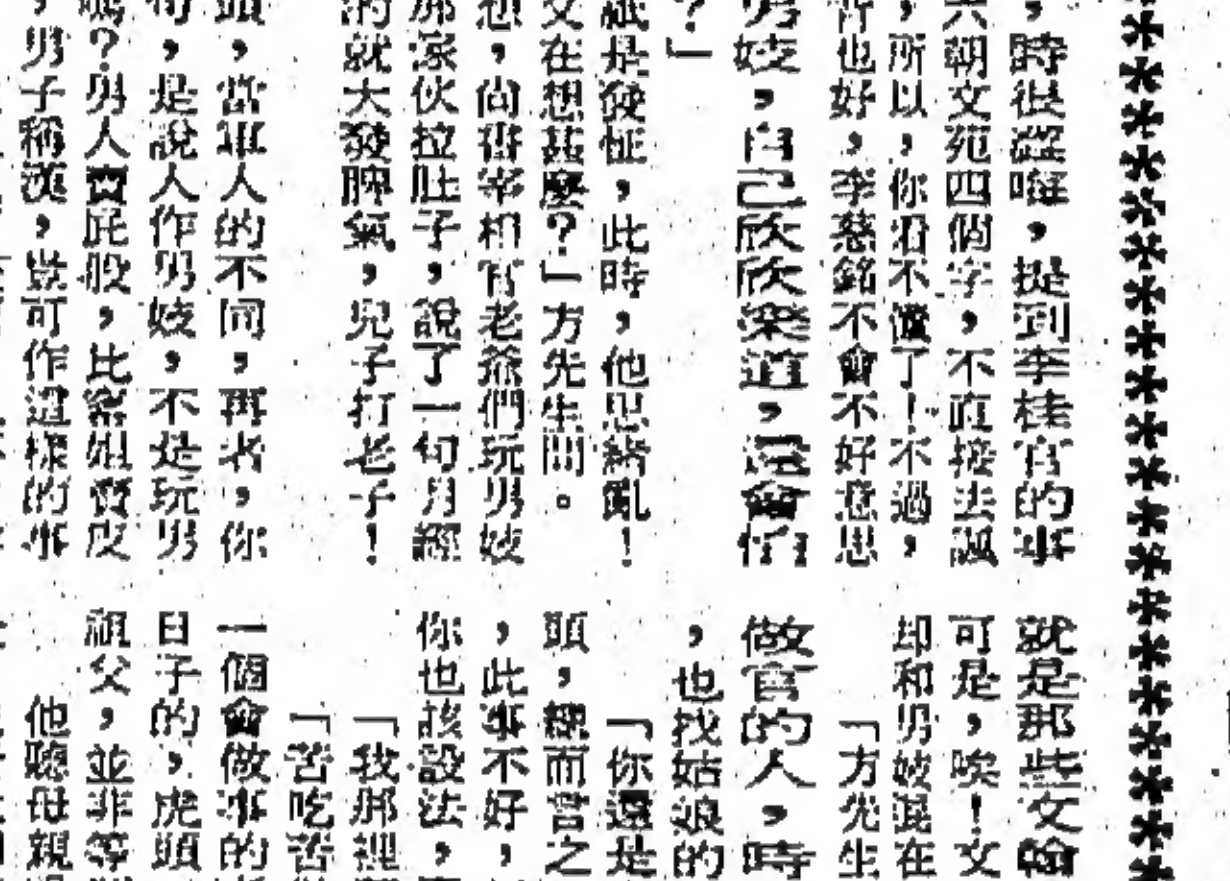 ，時很遲唯，提到李桂官的事
六朝文苑四個字，不直接去諷
，所以，你看不慣了！不過，
暫也好，李慈銘不會不好意思
男妓，自己欣欣樂道，還會怕
？」
祇是發怔，此時，他思緒亂！
又在想甚麼？」方先生問。
想，尚書宰相官老爺們玩男妓
那家伙拉肚子，說了一句月經
的就大發脾氣，兒子打老子！
頭，當軍人的不同，再者，你
，是說人作男妓，不是玩男
嗎？男人賣屁股，比窰姐賣皮
，男子稱漢，豈可作這樣的事
就是那些文翰
可是，唉！文
却和男妓混在
「方先生
做官的人，時
，也找姑娘的
「你還是
頭，總而言之
，此事不好，
你也該設法，
「我那裡
「苦吃苦
一個會做事的
日子的，虎頭
祖父，並非等
他聽母親